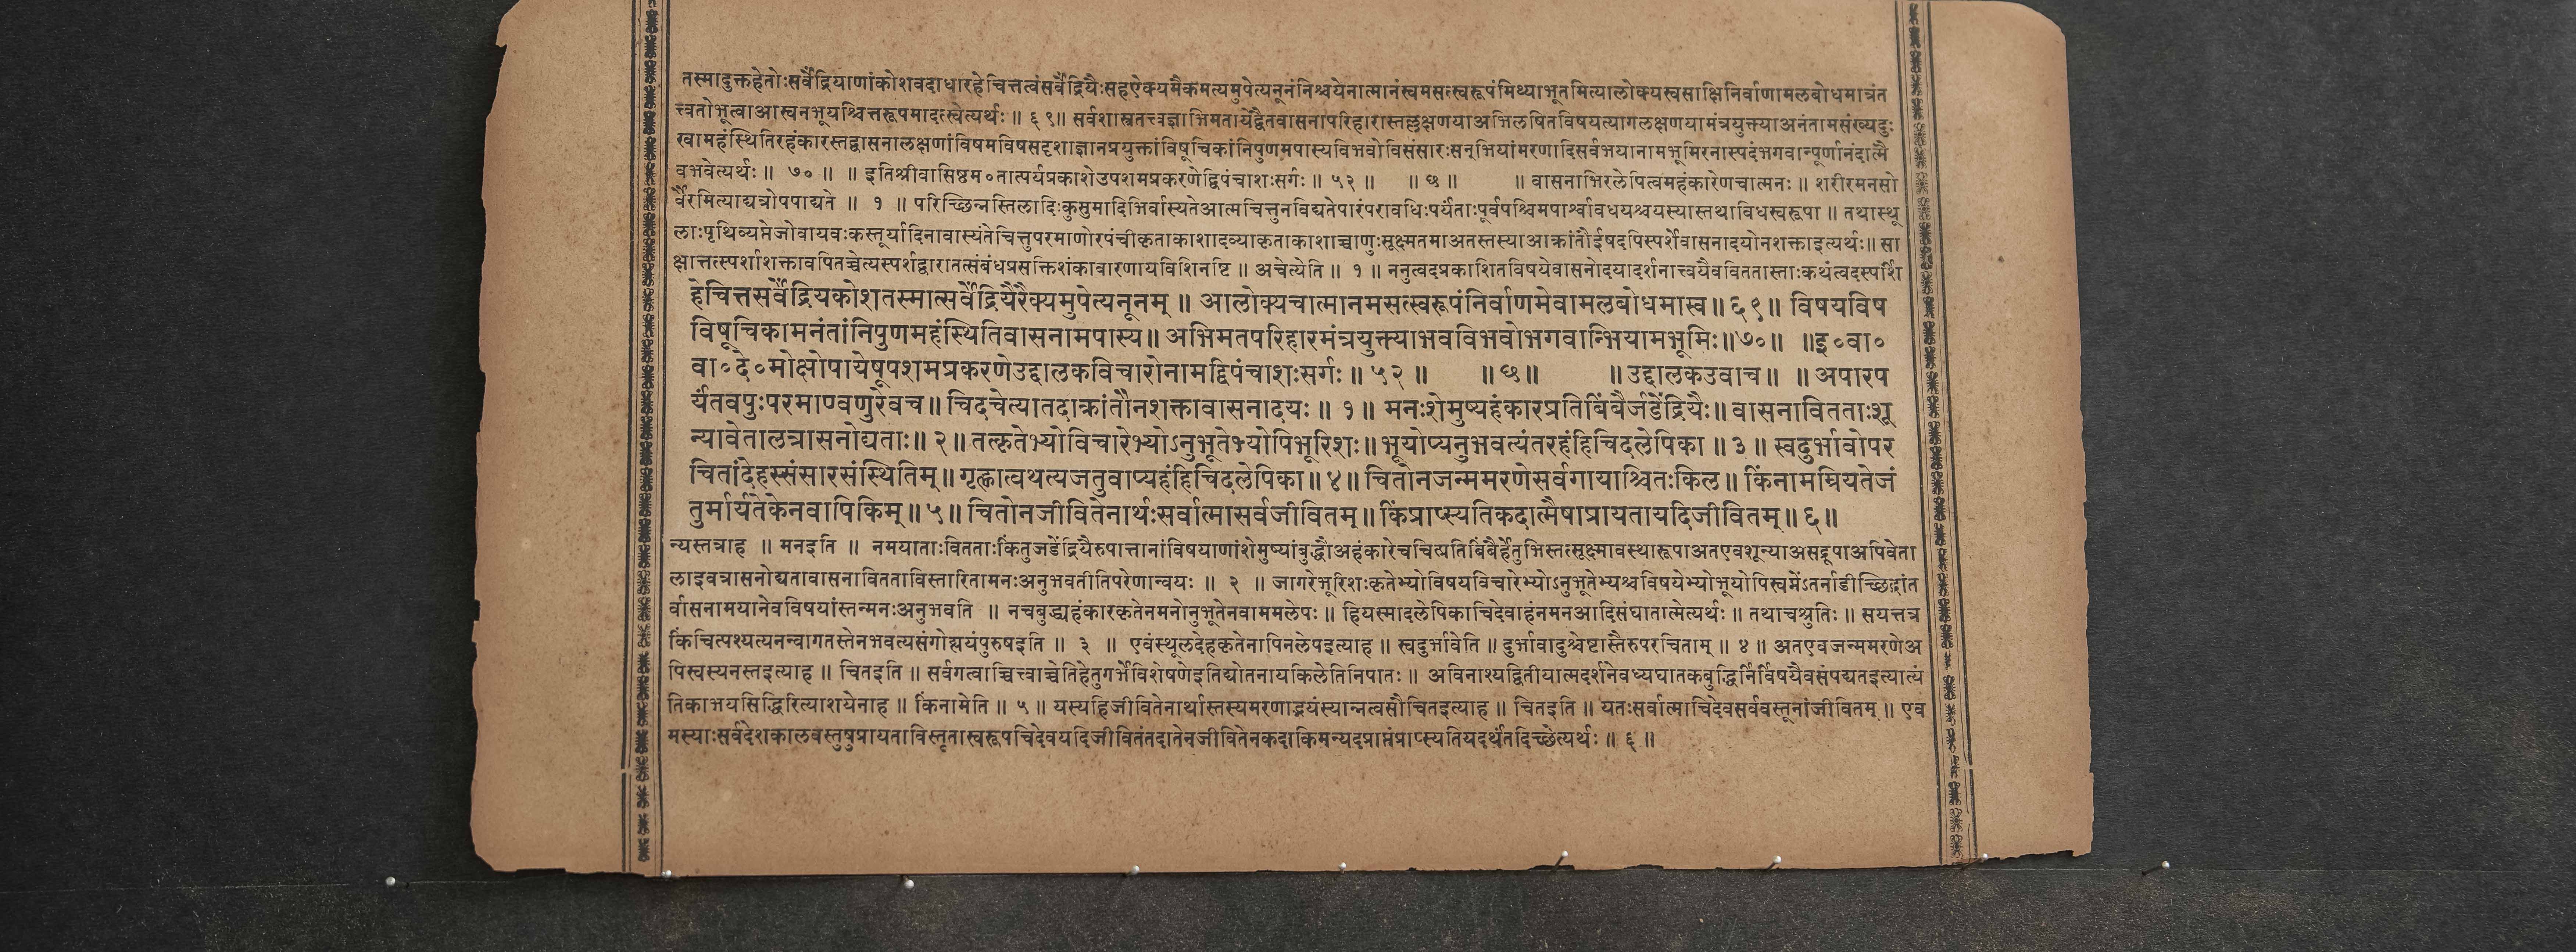 तस्मादुक्तहेतोःसर्वेंद्रियाणांकोशवदाधारहेचित्तत्वंसर्वेंद्रियैःसहऐक्यमैकमत्यमुपेत्यनूनंनिश्चयेनात्मानंस्वमसत्स्वरूपंमिथ्याभूतमित्यालोक्यस्वसाक्षिनिर्वाणामलबोधमात्रंत
त्त्वतोभूत्वाआस्वनभूयश्चित्तरूपमादत्स्वेत्यर्थः ॥ ६९॥ सर्वशास्त्रतत्त्वज्ञाभिमतायेद्वैतवासनापरिहारास्तल्लक्षणयाअभिलषितविषयत्यागलक्षणयामंत्रयुक्त्याअनंतामसंख्यदुः
खामहंस्थितिरहंकारस्तद्वासनालक्षणांविषमविषसदृशाज्ञानप्रयुक्तांविषूचिकांनिपुणमपास्यविभवोविसंसारःसन्भियांमरणादिसर्वभयानामभूमिरनास्पदंभगवान्पूर्णानंदात्मै
वभवेत्यर्थः ॥ ७० ॥ ॥ इतिश्रीवासिष्ठम॰तात्पर्यप्रकाशेउपशमप्रकरणेद्विपंचाशःसर्गः ॥ ५२ ॥ ॥ छ ॥ ॥ वासनाभिरलेपित्वमहंकारेणचात्मनः ॥ शरीरमनसो
र्वैरमित्याद्यत्रोपपाद्यते ॥ १ ॥ परिच्छिन्नस्तिलादिःकुसुमादिभिर्वास्यतेआत्मचित्तुनविद्यतेपारंपरावधिःपर्यंताःपूर्वपश्चिमपार्श्वावधयश्चयस्यास्तथाविधस्वरूपा ॥ तथास्थू
लाःपृथिव्यप्तेजोवायवःकस्तूर्यादिनावास्यंतेचित्तुपरमाणोरपंचीकृताकाशादव्याकृताकाशाच्चाणुःसूक्ष्मतमाअतस्तस्याआक्रांतौईषदपिस्पर्शेवासनादयोनशक्ताइत्यर्थः॥ सा
क्षात्तत्स्पर्शाशक्तावपितच्चेत्यस्पर्शद्वारातत्संबंधप्रसक्तिशंकावारणायविशिनष्टि ॥ अचेत्येति ॥ १ ॥ ननुत्वदप्रकाशितविषयेवासनोदयादर्शनात्त्वयैववितास्ताःकथंत्वदस्पर्शि
हेचित्तसर्वेंद्रियकोशतस्मात्सर्वेंद्रियैरैक्यमुपेत्यनूनम् ॥ आलोक्यचात्मानमसत्स्वरूपंनिर्वाणमेवामलबोधमास्व॥ ६९॥ विषयविष
विषूचिकामनंतांनिपुणमहंस्थितिवासनामपास्य॥ अभिमतपरिहारमंत्रयुक्त्याभवविभवोभगवान्भियामभूमिः॥७०॥ ॥इ॰वा॰
वा॰दे॰मोक्षोपायेषूपशमप्रकरणेउद्दालकविचारोनामद्विपंचाशःसर्गः॥ ५२ ॥ ॥ छ॥ ॥ उद्दालकउवाच॥ ॥ अपारप
र्यंतवपुःपरमाण्वणुरेवच॥ चिदचेत्यातदाक्रांतौनशक्तावासनादयः॥ १॥ मनःशेमुष्यहंकारप्रतिबिंबैर्जडेंद्रियैः॥ वासनावितताःशू
न्यावेतालत्रासनोद्यताः॥ २॥ तत्कृतेभ्योविचारेभ्योऽनुभूतेभ्योपिभूरिशः॥ भूयोप्यनुभवत्यंतरहंहिचिदलेपिका॥ ३॥ स्वदुर्भावोपर
चितांदेहस्संसारसंस्थितिम्॥ गृह्णात्वथत्यजतुवाप्यहंहिचिदलेपिका॥ ४॥ चितोनजन्ममरणेसर्वगायाश्चितःकिल॥ किंनामम्रियतेजं
तुर्मार्यतेकेनवापिकिम्॥ ५॥ चितोनजीवितेनार्थःसर्वात्मासर्वजीवितम्॥ किंप्राप्स्यतिकदात्मैषाप्रायतायदिजीवितम्॥ ६॥
न्यस्तत्राह ॥ मनइति ॥ नमयाताःवितताःकिंतुजडेंद्रियैरुपात्तानांविषयाणांशेमुष्यांबुद्धौअहंकारेचचित्प्रतिबिंबैर्हेतुभिस्तत्सूक्ष्मावस्थारूपाअतएवशून्याअसद्रूपाअपिवेता
लाइवत्रासनोद्यतावासनावितताविस्तारितामनःअनुभवतीतिपरेणान्वयः ॥ २ ॥ जागरेभूरिशःकृतेभ्योविषयविचारेभ्योऽनुभूतेभ्यश्चविषयेभ्योभूयोपिस्वप्नेंऽतर्नाडीच्छिद्रांत
र्वासनामयानेवविषयांस्तन्मनःअनुभवति ॥ नचबुद्ध्यहंकारकृतेनमनोनुभूतेनवाममलेपः ॥ हियस्मादलेपिकाचिदेवाहंनमनआदिसंघातात्मेत्यर्थः ॥ तथाचश्रुतिः ॥ सयत्तत्र
किंचित्पश्यत्यनन्वागतस्तेनभवत्यसंगोह्ययंपुरुषइति ॥ ३ ॥ एवंस्थूलदेहकृतेनापिनलेपइत्याह ॥ स्वदुर्भावेति ॥ दुर्भावादुश्चेष्टास्तैरुपरचिताम् ॥ ४ ॥ अतएवजन्ममरणेअ
पिस्वस्यनस्तइत्याह ॥ चितइति ॥ सर्वगत्वाच्चित्त्वाच्चेतिहेतुगर्भेविशेषणेइतिद्योतनायकिलेतिनिपातः ॥ अविनाश्यद्वितीयात्मदर्शनेवध्यघातकबुद्धिर्निर्विषयैवसंपद्यतइत्यात्यं
तिकाभयसिद्धिरित्याशयेनाह ॥ किंनामेति ॥ ५ ॥ यस्यहिजीवितेनार्थास्तस्यमरणाद्भयंस्यान्नत्वसौचितइत्याह ॥ चितइति ॥ यतःसर्वात्माचिदेवसर्ववस्तूनांजीवितम् ॥ एव
मस्याःसर्वदेशकालवस्तुषुप्रायताविस्तृतास्वरूपचिदेवयदिजीवितंतदातेनजीवितेनकदाकिमन्यदप्राप्तंप्राप्स्यतियदर्थंतदिच्छेत्यर्थः ॥ ६ ॥